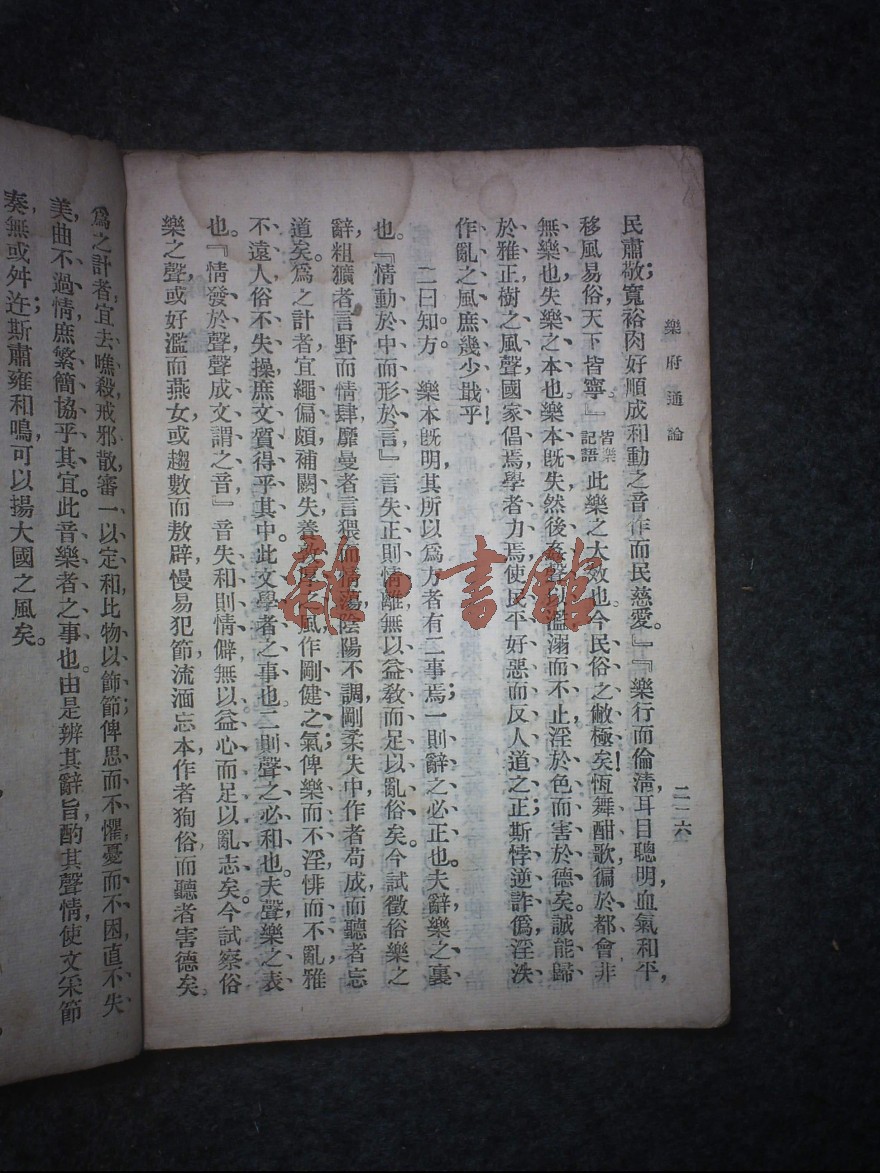 樂府通論
二一六
民肅敬;寬裕肉好順成和動之音作而民慈愛。』『樂行而倫淸,耳目聰明,血氣和平,
移風易俗,天下皆寧。』皆樂記語此樂之大效也。今民俗之敝極矣!恆舞酣歌,徧於都會,非
無樂也,失樂之本也。樂本旣失,然後姦聲以濫,溺而不止,淫於色而害於德矣。誠能歸
於雅正,樹之風聲,國家倡焉,學者力焉,使民平好惡而反人道之正;斯悖逆詐僞淫泆
作亂之風,庶幾少戢乎!
二曰知方 樂本旣明,其所以爲方者有二事焉;一則辭之必正也。夫辭,樂之裏
也。『情動於中而形於言』言失正則情離,無以益敎而足以亂俗矣。今試徵俗樂之
辭,粗獷者言野而情肆,靡曼者言猥而情蕩,陰陽不調,剛柔失中,作者苟成而聽者忘
道矣。爲之計者,宜繩偏頗,補闕失,養敦厚之風,作剛健之氣,俾樂而不淫,悱而不亂,雅
不遠人,俗不失操,庶文質得乎其中。此文學者之事也。二則聲之必和也。夫聲,樂之表
也。『情發於聲,聲成文謂之音』音失和則情僻,無以益心而足以亂志矣。今試察俗
樂之聲,或好濫而燕女,或趨數而敖辟,慢易犯節,流湎忘本,作者狥俗而聽者害德矣。
爲之計者,宜去噍殺,戒邪散,審一以定和,比物以飾節;俾思而不懼,憂而不困,直不失
美,曲不過情,庶繁簡協乎其宜。此音樂者之事也。由是辨其辭旨,酌其聲情,使文采節
奏,無或舛迕;斯肅雍和鳴,可以揚大國之風矣。
雜·書館